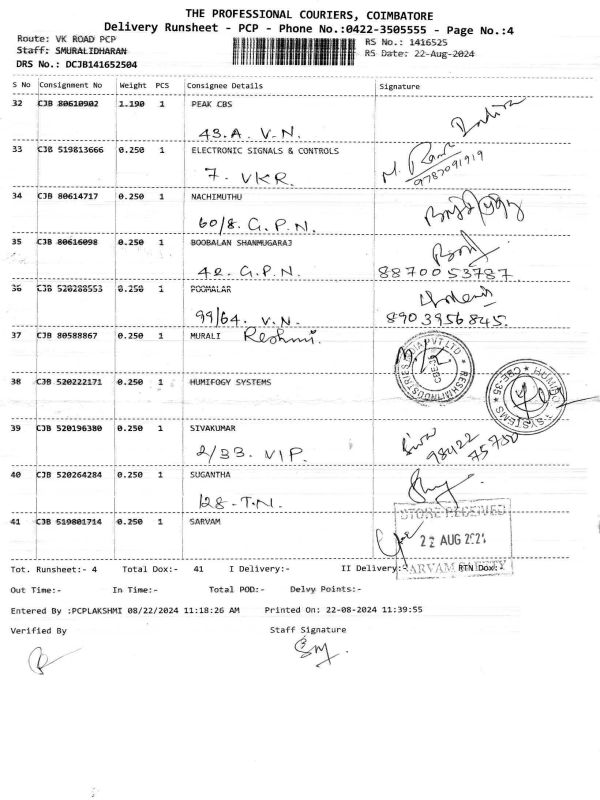 THE PROFESSIONAL COURIERS, COIMBATORE
Delivery Runsheet - PCP - Phone No.:0422-3505555 - Page No.:4
Route: VK ROAD PCP RS No.: 1416525
Staff: SMURALIDHARAN RS Date: 22-Aug-2024
DRS No.: DCJB141652504
S No Consignment No Weight PCS Consignee Details Signature
32 CJB 80610902 1.190 1 PEAK CBS
43.A. V.N. Indira
33 CJB 519813666 0.250 1 ELECTRONIC SIGNALS & CONTROLS
7. VKR. M. Ram 9787091919
34 CJB 80614717 0.250 1 NACHIMUTHU
60/8. G.P.N.
35 CJB 80616098 0.250 1 BOOBALAN SHANMUGARAJ
42. G.P.N. 8870053787
36 CJB 520288553 0.250 1 POOMALAR
99/64. V.N. 8903956845.
37 CJB 80588867 0.250 1 MURALI Reshmi. RESHMI INDUSTRIES INDIA PVT LTD CBE-35
38 CJB 520222171 0.250 1 HUMIFOGY SYSTEMS SYSTEMS CBE-35
39 CJB 520196380 0.250 1 SIVAKUMAR
2/33. VIP. Siva 98422 75700
40 CJB 520264284 0.250 1 SUGANTHA
128-T.N.
41 CJB 519801714 0.250 1 SARVAM STORE RECEIVED
22 AUG 2024
SARVAM SAFETY
Tot. Runsheet:- 4 Total Dox:- 41 I Delivery:- II Delivery:- RTN Dox:-
Out Time:- In Time:- Total POD:- Delvy Points:-
Entered By :PCPLAKSHMI 08/22/2024 11:18:26 AM Printed On: 22-08-2024 11:39:55
Verified By Staff Signature